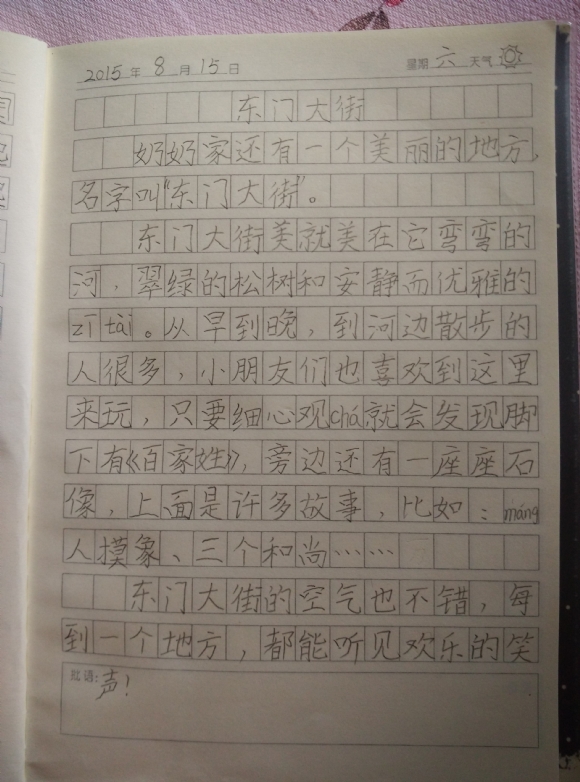 2015年8月15日 星期 六 天气
东门大街
奶奶家还有一个美丽的地方,
名字叫“东门大街”。
东门大街美就美在它弯弯的
河,翠绿的松树和安静而优雅的
zī tài。从早到晚,到河边散步的
人很多,小朋友们也喜欢到这里
来玩,只要细心观chá就会发现脚
下有《百家姓》,旁边还有一座座石
像,上面是许多故事,比如:máng
人摸象、三个和尚……
东门大街的空气也不错,每
到一个地方,都能听见欢乐的笑
批语:声!